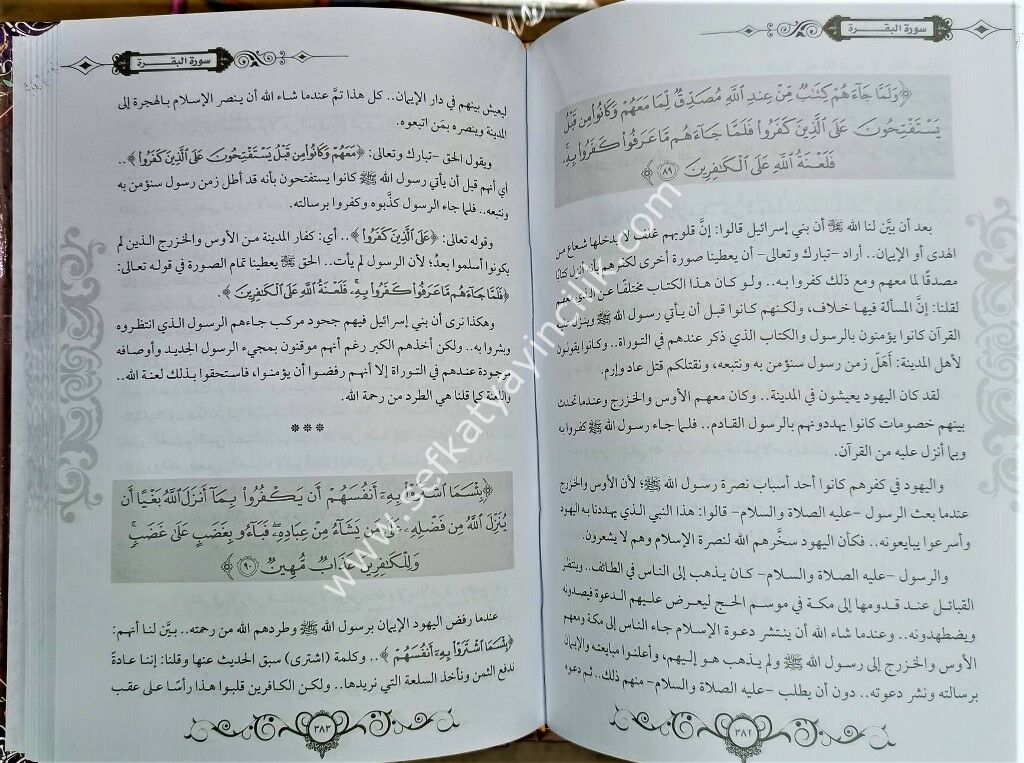 سورة البقـــرة
﴿وَلَمَّا جَآءَهُمْ كِتَٰبٌ مِّنْ عِندِ ٱللَّهِ مُصَدِّقٌ لِّمَا مَعَهُمْ وَكَانُوا۟ مِن قَبْلُ
يَسْتَفْتِحُونَ عَلَى ٱلَّذِينَ كَفَرُوا۟ فَلَمَّا جَآءَهُم مَّا عَرَفُوا۟ كَفَرُوا۟ بِهِۦ ۚ
فَلَعْنَةُ ٱللَّهِ عَلَى ٱلْكَٰفِرِينَ ﴿٨٩﴾﴾
بعد أن بيَّن لنا الله ﷺ أن بني إسرائيل قالوا: إنَّ قلوبهم غلف لا يدخلها شعاع من
الهدى أو الإيمان.. أراد -تبارك وتعالى- أن يعطينا صورة أخرى لكفرهم بأنه أنزل كتابًا
مصدقًا لما معهم ومع ذلك كفروا به.. ولو كان هذا الكتاب مختلفًا عن الذي معهم
لقلنا: إنَّ المسألة فيها خلاف، ولكنهم كانوا قبل أن يأتي رسول الله ﷺ وينزل عليه
القرآن كانوا يؤمنون بالرسول والكتاب الذي ذكر عندهم في التوراة.. وكانوا يقولون
لأهل المدينة: أَهَلَّ زمن رسول سنؤمن به ونتبعه، ونقتلكم قتل عاد وإرم.
لقد كان اليهود يعيشون في المدينة.. وكان معهم الأوس والخزرج وعندما تحدث
بينهم خصومات كانوا يهددونهم بالرسول القادم.. فلما جاء رسول الله ﷺ كفروا به
وبما أنزل عليه من القرآن.
واليهود في كفرهم كانوا أحد أسباب نصرة رسول الله ﷺ؛ لأن الأوس والخزرج
عندما بعث الرسول -عليه الصلاة والسلام- قالوا: هذا النبي الذي يهددنا به اليهود
وأسرعوا يبايعونه.. فكأن اليهود سخَّرهم الله لنصرة الإسلام وهم لا يشعرون.
والرسول -عليه الصلاة والسلام- كان يذهب إلى الناس في الطائف.. وينتظر
القبائل عند قدومها إلى مكة في موسم الحج ليعرض عليهم الدعوة فيصدونه
ويضطهدونه.. وعندما شاء الله أن ينتشر دعوة الإسلام جاء الناس إلى مكة ومعهم
الأوس والخزرج إلى رسول الله ﷺ ولم يذهب هو إليهم، وأعلنوا مبايعته والإيمان
برسالته ونشر دعوته.. دون أن يطلب -عليه الصلاة والسلام- منهم ذلك.. ثم دعوه
٣٨٢
سورة البقـــرة
ليعيش بينهم في دار الإيمان.. كل هذا تمَّ عندما شاء الله أن ينصر الإسلام بالهجرة إلى
المدينة وينصره بمَن اتبعوه.
ويقول الحق -تبارك وتعالى: ﴿مَعَهُمْ وَكَانُوا۟ مِن قَبْلُ يَسْتَفْتِحُونَ عَلَى ٱلَّذِينَ كَفَرُوا۟﴾..
أي أنهم قبل أن يأتي رسول الله ﷺ كانوا يستفتحون بأنه قد أطل زمن رسول سنؤمن به
ونتبعه.. فلما جاء الرسول كذَّبوه وكفروا برسالته.
وقوله تعالى: ﴿عَلَى ٱلَّذِينَ كَفَرُوا۟﴾.. أي: كفار المدينة من الأوس والخزرج الذين لم
يكونوا أسلموا بعدُ؛ لأن الرسول لم يأت.. الحق ﷺ يعطينا تمام الصورة في قوله تعالى:
﴿فَلَمَّا جَآءَهُم مَّا عَرَفُوا۟ كَفَرُوا۟ بِهِۦ ۚ فَلَعْنَةُ ٱللَّهِ عَلَى ٱلْكَٰفِرِينَ﴾.
وهكذا نرى أن بني إسرائيل فيهم جحود مركب جاءهم الرسول الذي انتظروه
وبشروا به.. ولكن أخذهم الكبر رغم أنهم موقنون بمجيء الرسول الجديد وأوصافه
موجودة عندهم في التوراة إلا أنهم رفضوا أن يؤمنوا، فاستحقوا بذلك لعنة الله..
واللعنة كما قلنا هي الطرد من رحمة الله.
***
﴿بِئْسَمَا ٱشْتَرَوْا۟ بِهِۦٓ أَنفُسَهُمْ أَن يَكْفُرُوا۟ بِمَآ أَنزَلَ ٱللَّهُ بَغْيًا أَن
يُنَزِّلَ ٱللَّهُ مِن فَضْلِهِۦ عَلَىٰ مَن يَشَآءُ مِنْ عِبَادِهِۦ ۖ فَبَآءُو بِغَضَبٍ عَلَىٰ غَضَبٍ ۚ
وَلِلْكَٰفِرِينَ عَذَابٌ مُّهِينٌ ﴿٩٠﴾﴾
عندما رفض اليهود الإيمان برسول الله ﷺ وطردهم الله من رحمته.. بيَّن لنا أنهم:
﴿بِئْسَمَا ٱشْتَرَوْا۟ بِهِۦٓ أَنفُسَهُمْ﴾.. وكلمة (اشترى) سبق الحديث عنها وقلنا: إننا عادةً
ندفع الثمن ونأخذ السلعة التي نريدها.. ولكن الكافرين قلبوا هذا رأسًا على عقب
٣٨٣
www.sefkatyayincilik.com